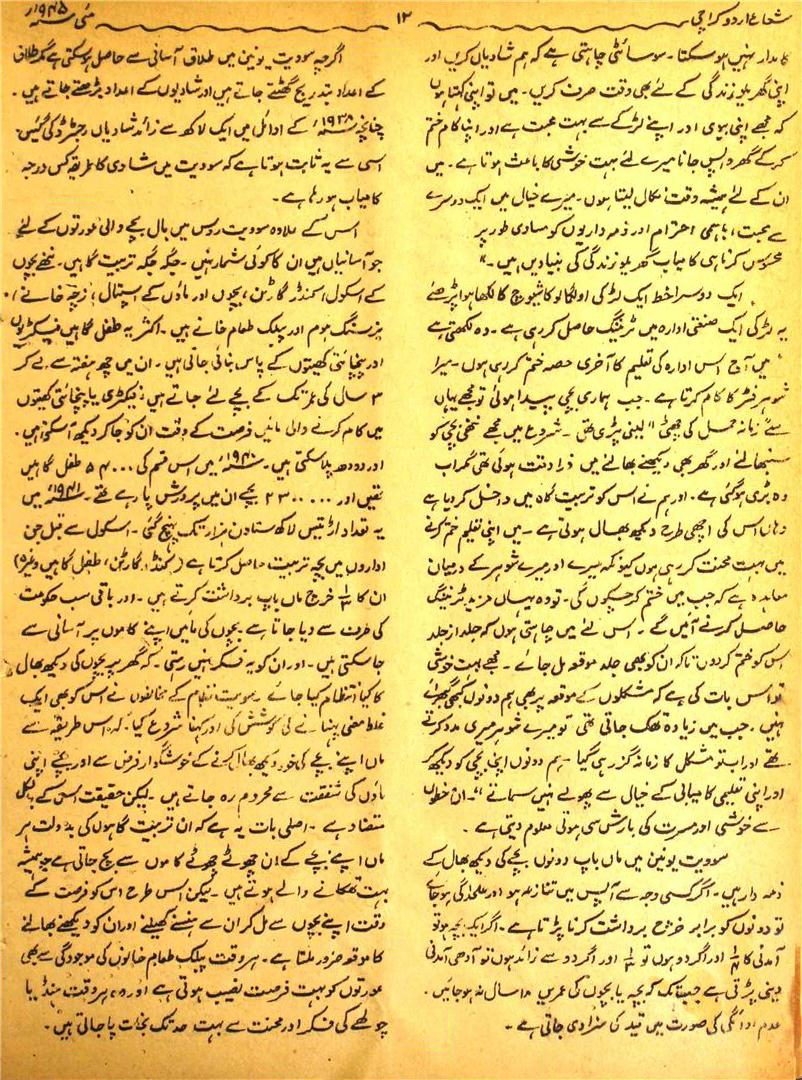 شعاع اردو کراچی
۱۲
مئی ۱۹۴۵ء
کا مدار نہیں ہو سکتا ۔ سوسائٹی چاہتی ہے کہ ہم شادیاں کریں اور
اپنی گھریلو زندگی کے لئے بھی وقت صرف کریں ۔ میں تو اپنی کہتا ہوں
کہ مجھے اپنی بیوی اور اپنے لڑکے سے بہت محبت ہے اور اپنا کام ختم
کر کے گھر واپس جانا میرے لئے بہت خوشی کا باعث ہوتا ہے ۔ میں
ان کے لئے ہمیشہ وقت نکال لیتا ہوں ۔ میرے خیال میں ایک دوسرے
سے محبت ، باہمی احترام اور ذمہ داریوں کو مساوی طور پر
محسوس کرنا ہی کامیاب گھریلو زندگی کی بنیادیں ہیں ۔"
ایک دوسرا خط ایک لڑکی اولگا لوکاشیوچ کا لکھا ہوا پڑھئے
یہ لڑکی ایک صنعتی ادارہ میں ٹریننگ حاصل کر رہی ہے ۔ وہ لکھتی ہے
" میں آج اس ادارہ کی تعلیم کا آخری حصہ ختم کر رہی ہوں ۔ میرا
شوہر فٹر کا کام کرتا ہے ۔ جب ہماری بچی پیدا ہوئی تو مجھے یہاں
سے " زمانہ حمل کی چھٹی " لینی پڑی تھی ۔ شروع میں مجھے ننھی بچی کو
سنبھالنے اور گھر بھی دیکھنے بھالنے میں ذرا دقت ہوئی تھی مگر اب
وہ بڑی ہو گئی ہے ۔ اور ہم نے اس کو تربیت گاہ میں داخل کر دیا ہے
وہاں اس کی اچھی طرح دیکھ بھال ہوتی ہے ۔ میں اپنی تعلیم ختم کرنے
میں بہت محنت کر رہی ہوں کیونکہ میرے اور میرے شوہر کے درمیان
معاہدہ ہے کہ جب میں ختم کر چکوں گی ۔ تو وہ یہاں مزید ٹریننگ
حاصل کرنے آئیں گے ۔ اس لئے میں چاہتی ہوں کہ جلد از جلد
اس کو ختم کر دوں تاکہ ان کو بھی جلد موقعہ مل جائے ۔ مجھے بہت خوشی
تو اس بات کی ہے کہ مشکلوں کے موقعہ پر بھی ہم دونوں کبھی گھبرائے
نہیں ۔ جب میں زیادہ تھک جاتی تھی تو میرے شوہر میری مدد کرتے
تھے اور اب تو مشکل کا زمانہ گزر ہی گیا ۔ ہم دونوں اپنی بچی کو دیکھ کر
اور اپنی تعلیمی کامیابی کے خیال سے پھولے نہیں سماتے " ۔ ان خطوں
سے خوشی اور مسرت کی بارش سی ہوتی معلوم دیتی ہے ۔
سوویت یونین میں ماں باپ دونوں بچے کی دیکھ بھال کے
ذمہ دار ہیں ۔ اگر کسی وجہ سے آپس میں تنازعہ ہو اور علیحدگی ہو جائے
تو دونوں کو برابر خرچ برداشت کرنا پڑتا ہے ۔ اگر ایک بچہ ہو تو
آمدنی کا ۱/۴ اور اگر دو ہوں تو ۱/۳ اور اگر دو سے زائد ہوں تو آدھی آمدنی
دینی پڑتی ہے جب تک کہ بچہ یا بچوں کی عمریں ۱۸ سال نہ ہو جائیں ۔
عدم ادائگی کی صورت میں قید کی سزا دی جاتی ہے ۔
اگرچہ سوویت یونین میں طلاق آسانی سے حاصل ہو سکتی ہے مگر طلاق
کے اعداد بتدریج گھٹتے جاتے ہیں اور شادیوں کے اعداد بڑھتے جاتے ہیں ۔
چنانچہ ۱۹۳۸ء کے اوائل میں ایک لاکھ سے زائد شادیاں رجسٹرڈ کی گئیں ۔
اسی سے یہ ثابت ہوتا ہے کہ سوویت میں شادی کا طریقہ کس درجہ
کامیاب ہو رہا ہے ۔
اس کے علاوہ سوویت روس میں بال بچے والی عورتوں کے لئے
جو آسانیاں ہیں ان کا کوئی شمار نہیں ۔ جگہ جگہ تربیت گاہیں ۔ ننھے بچوں
کے اسکول ، کنڈر گارٹن ، بچوں اور ماؤں کے اسپتال ، زچہ خانے ،
نرسنگ ہوم اور پبلک طعام خانے ہیں ۔ اکثر یہ طفل گاہیں فیکٹریوں
اور پنچائتی کھیتوں کے پاس بنائی جاتی ہیں ۔ ان میں چھ ہفتہ سے لے کر
۳ سال کی عمر تک کے بچے لئے جاتے ہیں ؛ فیکٹری یا پنچائتی کھیتوں
میں کام کرنے والی مائیں فرصت کے وقت ان کو جا کر دیکھ آ سکتی ہیں ۔
اور دودھ پلا سکتی ہیں ۔ ۱۹۴۰ء میں اس قسم کی ۵۴۰۰۰ طفل گاہیں
تھیں اور ۲۳۰۰۰۰۰ بچے ان میں پرورش پا رہے تھے ۔ ۱۹۴۱ء میں
یہ تعداد اڑتیس لاکھ ستاون ہزار تک پہنچ گئی ۔ اسکول سے قبل جن
اداروں میں بچہ تربیت حاصل کرتا ہے ( کنڈر گارٹن ، طفل گاہیں وغیرہ )
ان کا ۱/۳ خرچ ماں باپ برداشت کرتے ہیں ۔ اور باقی سب حکومت
کی طرف سے دیا جاتا ہے بچوں کی مائیں اپنے کاموں پر آسانی سے
جا سکتی ہیں ۔ اور ان کو یہ فکر نہیں رہتی ۔ کہ گھر پر بچوں کی دیکھ بھال
کا کیا انتظام کیا جائے ۔ سوویت نظام کے مخالفوں نے اس کو بھی ایک
غلط معنی پہنانے کی کوشش کی اور کہنا شروع کیا ۔ کہ اس طریقہ سے
ماں اپنے بچے کی خود دیکھ بھال کرنے کے خوشگوار فرض سے اور بچے اپنی
ماؤں کی شفقت سے محروم رہ جاتے ہیں ۔ لیکن حقیقت اس کے بالکل
متضاد ہے ۔ اصلی بات یہ ہے کہ ان تربیت گاہوں کی بدولت ہر
ماں اپنے بچے کے ان چھوٹے چھوٹے کاموں سے بچ جاتی ہے جو ہمیشہ
بہت تھکانے والے ہوتے ہیں ۔ لیکن اس طرح اس کو فرصت کے
وقت اپنے بچوں سے مل کر ان سے ہنسنے کھیلنے اور ان کو دیکھنے بھالنے
کا موقعہ ضرور ملتا ہے ۔ ہر وقت پبلک طعام خانوں کی موجودگی سے بھی
عورتوں کو بہت فرصت نصیب ہوتی ہے اور وہ ہر وقت ہنڈیا
چولھے کی فکر اور محنت سے بہت حد تک نجات پا جاتی ہیں ۔